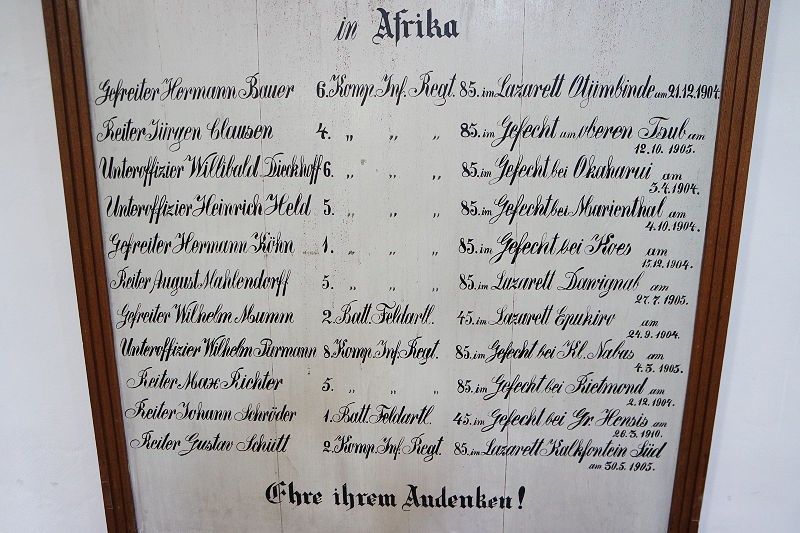 in Afrika
Gefreiter Hermann Bauer 6. Komp. Inf. Regt. 85. im Lazarett Otjimbinde am 21.12.1904.
Reiter Jürgen Clausen 4. „ „ „ 85. im Gefecht am oberen Tsub am 12.10.1905.
Unteroffizier Willibald Dieckhoff 6. „ „ „ 85. im Gefecht bei Okaharui am 3.4.1904.
Unteroffizier Heinrich Held 5. „ „ „ 85. im Gefecht bei Marienthal am 4.10.1904.
Gefreiter Hermann Köhn 1. „ „ „ 85. im Gefecht bei Koes am 15.12.1904.
Reiter August Mahlendorff 5. „ „ „ 85. im Lazarett Dawignab am 27.7.1905.
Gefreiter Wilhelm Mumm 2. Batt. Feldartl. 45. im Lazarett Epukiro am 24.9.1904.
Unteroffizier Wilhelm Purmann 8. Komp. Inf. Regt. 85. im Gefecht bei Kl. Nabas am 4.3.1905.
Reiter Max Richter 5. „ „ „ 85. im Gefecht bei Rietmond am 2.12.1904.
Reiter Johann Schröder 1. Batt. Feldartl. 45. im Gefecht bei Gr. Hensis am 26.3.1910.
Reiter Gustav Schütt 2. Komp. Inf. Regt. 85. im Lazarett Kalkfontein Süd am 30.5.1905.
Ehre ihrem Andenken!